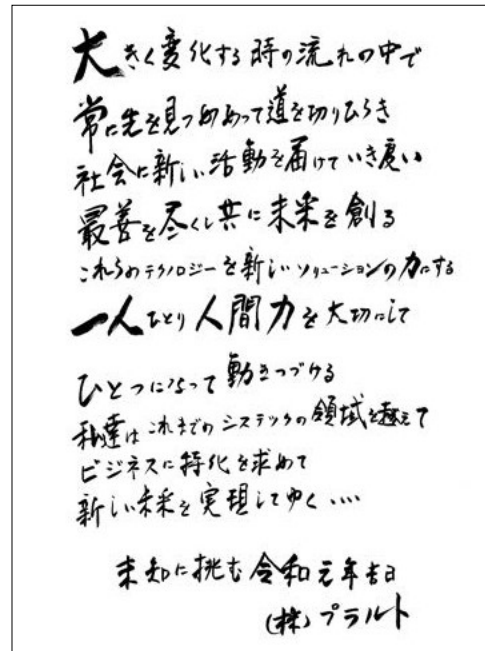 大きく変化する時の流れの中で
常に先を見つめあって道を切りひらき
社会に新しい活動を届けていき度い
最善を尽くし共に未来を創る
これらのテクノロジーを新しいソリューションの力にする
一人ひとり人間力を大切にして
ひとつになって動きつづける
私達はこれまでのシステックの領域を越えて
ビジネスに特化を求めて
新しい未来を実現してゆく....
未知に挑む令和元年吉日
(株)プラルト